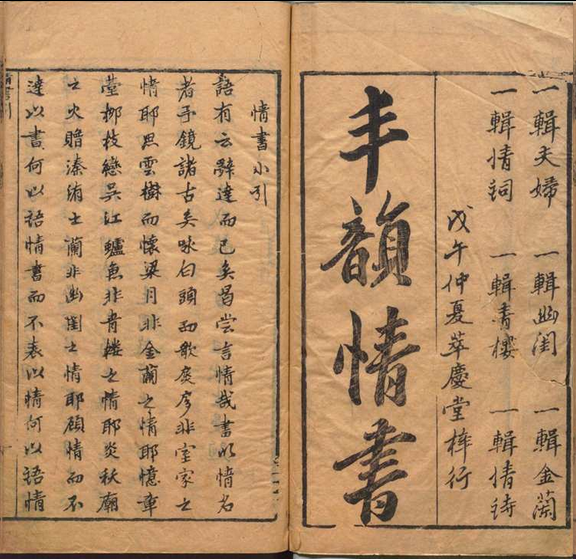 一輯夫婦 一輯幽閨 一輯金蘭
一輯情詞 一輯青樓 一輯情詩
戊午仲夏萃慶堂梓行
丰韻情書
情書小引
語有云辭達而已矣曷嘗言情哉書以情名
者予鏡諸古矣咏白頭而歌扊扅非室家之
情耶思雲樹而懷梁月非金蘭之情耶憶章
臺柳枝戀吳江鱸魚非青樓之情耶炎祆廟
之火贈溱洧之蘭非幽閨之情耶顧情而不
達以書何以語情書而不表以情何以語情